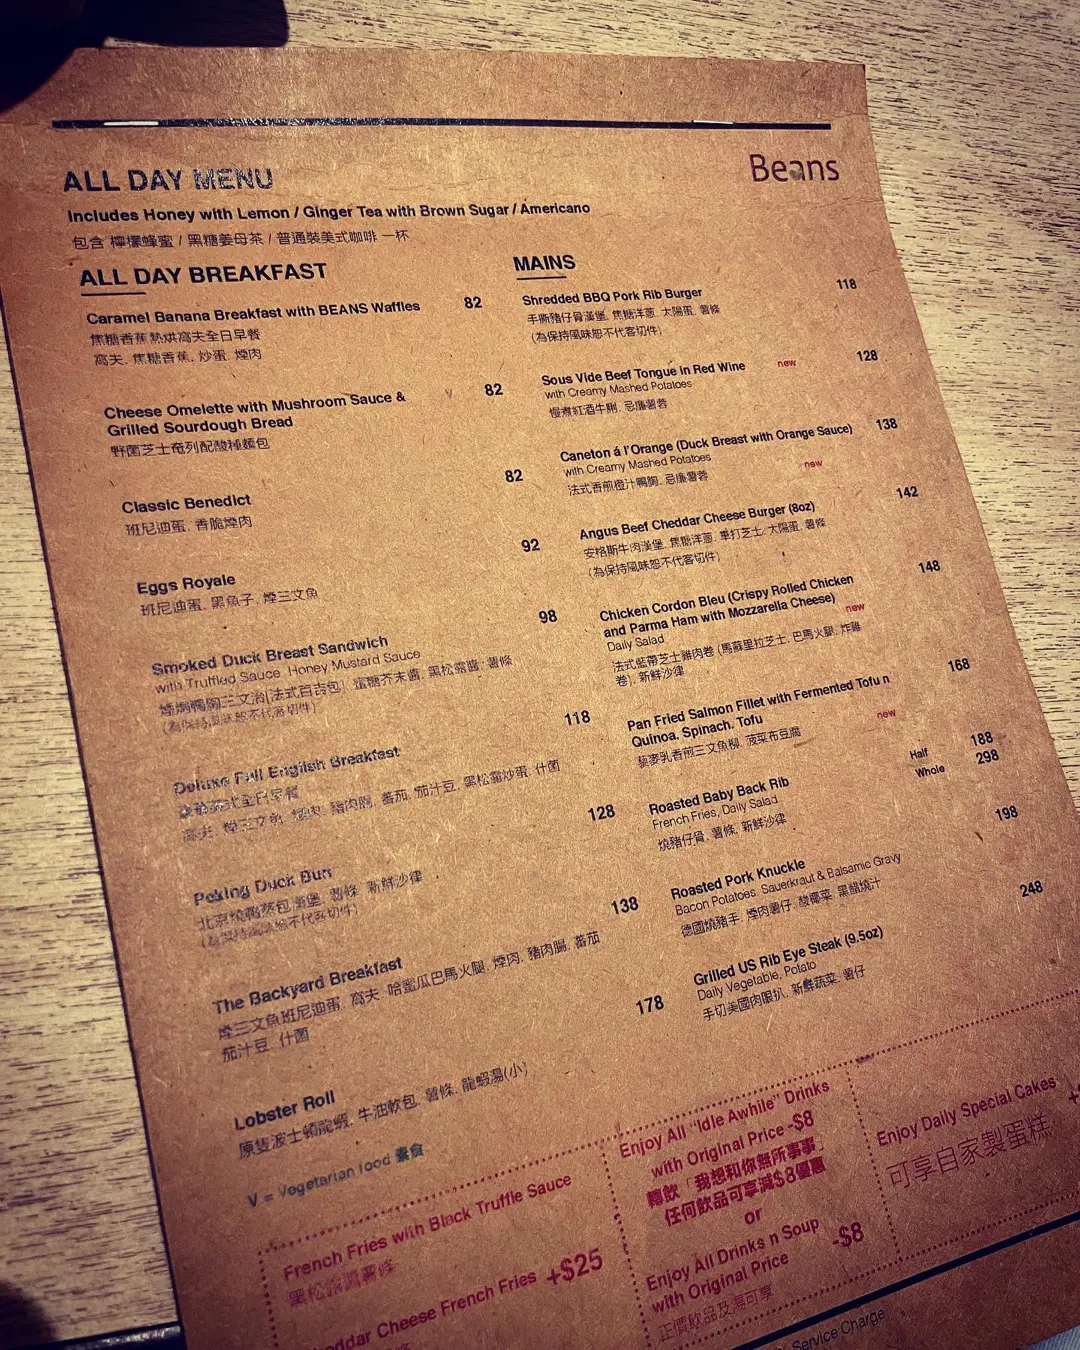 ALL DAY MENU
Beans
Includes Honey with Lemon / Ginger Tea with Brown Sugar / Americano
包含 檸檬蜂蜜 / 黑糖姜母茶 / 普通裝美式咖啡 一杯
ALL DAY BREAKFAST
Caramel Banana Breakfast with BEANS Waffles 82
焦糖香蕉熱烘窩夫全日早餐
窩夫, 焦糖香蕉, 炒蛋, 煙肉
Cheese Omelette with Mushroom Sauce & V 82
Grilled Sourdough Bread
野菌芝士奄列配酸種麵包
Classic Benedict 82
班尼迪蛋, 香脆煙肉
Eggs Royale 92
班尼迪蛋, 黑魚子, 煙三文魚
Smoked Duck Breast Sandwich 98
with Truffled Sauce, Honey Mustard Sauce
煙焗鴨胸三文治(法式百吉包), 蜜糖芥末醬, 黑松露醬, 薯條
(為保持風味恕不代客切件)
Deluxe Full English Breakfast 118
豪華英式全日早餐
窩夫, 煙三文魚, 煙肉, 豬肉腸, 蕃茄, 茄汁豆, 黑松露炒蛋, 什菌
Peking Duck Bun 128
北京燒鴨蒸包漢堡, 薯條, 新鮮沙律
(為保持風味恕不代客切件)
The Backyard Breakfast 138
煙三文魚班尼迪蛋, 窩夫, 哈蜜瓜巴馬火腿, 煙肉, 豬肉腸, 蕃茄
茄汁豆, 什菌
Lobster Roll 178
原隻波士頓龍蝦, 牛油軟包, 薯條, 龍蝦湯(小)
V = Vegetarian food 素食
MAINS
Shredded BBQ Pork Rib Burger 118
手撕豬仔骨漢堡, 焦糖洋蔥, 太陽蛋, 薯條
(為保持風味恕不代客切件)
Sous Vide Beef Tongue in Red Wine new 128
with Creamy Mashed Potatoes
慢煮紅酒牛脷, 忌廉薯蓉
Caneton á l'Orange (Duck Breast with Orange Sauce) 138
with Creamy Mashed Potatoes new
法式香煎橙汁鴨胸, 忌廉薯蓉
Angus Beef Cheddar Cheese Burger (8oz) 142
安格斯牛肉漢堡, 焦糖洋蔥, 車打芝士, 太陽蛋, 薯條
(為保持風味恕不代客切件)
Chicken Cordon Bleu (Crispy Rolled Chicken 148
and Parma Ham with Mozzarella Cheese) new
Daily Salad
法式藍帶芝士雞肉卷 (馬蘇里拉芝士, 巴馬火腿, 炸雞
卷), 新鮮沙律
Pan Fried Salmon Fillet with Fermented Tofu n 168
Quinoa, Spinach, Tofu new
藜麥乳香煎三文魚柳, 菠菜布豆腐
Roasted Baby Back Rib Half 188
French Fries, Daily Salad Whole 298
燒豬仔骨, 薯條, 新鮮沙律
Roasted Pork Knuckle 198
Bacon Potatoes, Sauerkraut & Balsamic Gravy
德國燒豬手, 煙肉薯仔, 酸椰菜, 黑醋燒汁
Grilled US Rib Eye Steak (9.5oz) 248
Daily Vegetable, Potato
手切美國肉眼扒, 新鮮蔬菜, 薯仔
French Fries with Black Truffle Sauce
黑松露醬薯條
+$25
Cheese French Fries
Enjoy All "Idle Awhile" Drinks
with Original Price -$8
轉飲「我想和你無所事事」
任何飲品可享減$8優惠
or
Enjoy All Drinks n Soup
with Original Price -$8
正價飲品及湯可享
Enjoy Daily Special Cakes
可享自家製蛋糕
Service Charge